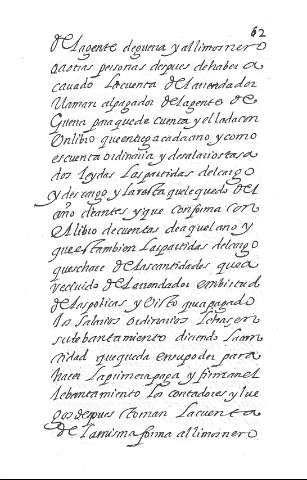 62
de la gente de guerra y al limosnero
a otras personas despues de haber a
cavado la cuenta del arrendador
llaman al pagador de la gente de
Guerra para que de cuenta y el lada con
un libro que entrega cada año y como
es cuenta ordinaria y de salarios tasa
dos leydas las partidas del cargo
y descargo y la resta que le quedo del
año de antes y que conforma con
el libro de cuentas de aquel ano y
que estan bien las partidas del cargo
que se hace de las cantidades que a
recluido del arrendador en birtud
de las policas y visto que a pagado
los salarios ordinarios le hacen
su lebantamiento diciendo la can
tidad que queda en su poder para
hacer la primera paga y firman el
lebantamiento los contadores y lue
go despues toman la cuenta
de la misma forma al limosnero